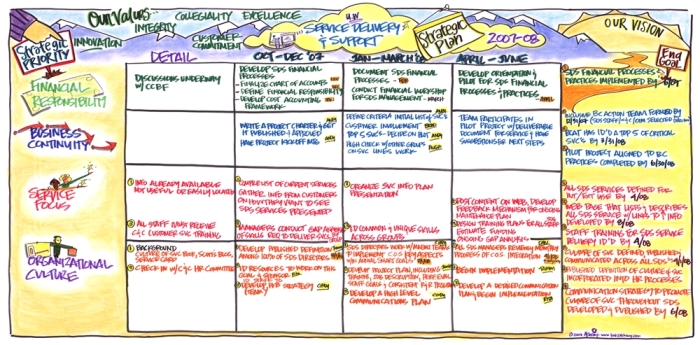 Our Values...
COLLEGIALITY EXCELLENCE
INTEGRITY
INNOVATION
CUSTOMER
COMMITMENT
SERVICE DELIVERY
& SUPPORT
Strategic
Plan
2007-08
OUR VISION
Strategic
PRIORITY
End
GOAL
DETAIL
OCT - DEC '07
JAN - MARCH '08
APRIL - JUNE
FINANCIAL
RESPONSIBILITY
DISCUSSIONS UNDERWAY
W/ CCBF
DEVELOP SDS FINANCIAL
PROCESSES
- FINALIZE CHART OF ACCOUNTS
- DEFINE FINANCIAL RESPONSIBILITY
- DEVELOP COST ACCOUNTING
FRAMEWORK
DOCUMENT SDS FINANCIAL
PROCESSES
CONDUCT FINANCIAL WORKSHOP
FOR SDS MANAGEMENT - MARCH
DEVELOP ORIENTATION &
PILOT FOR SDS FINANCIAL
PROCESSES & PRACTICES
SDS FINANCIAL PROCESSES &
PRACTICES IMPLEMENTED BY
BUSINESS
CONTINUITY
WRITE A PROJECT CHARTER & GET
IT PUBLISHED & APPROVED
HAVE PROJECT KICKOFF MTG
DEFINE CRITERIA INITIAL LIST of SVC'S
CUSTOMER INVOLVEMENT
TOP 5 SVC'S - DECIDE ON BUT
HIGH CHECK W/ OTHER GROUPS
ON SVC LINES WORK
TEAM PARTICIPATES
IN PILOT PROJECT W/ DELIVERABLE
DOCUMENT FOR SERVICE & HAVE
SUGGESTIONS for NEXT STEPS
BC ACTION TEAM FORMED BY
BCAT HAS ID'D A TOP 5 OF CRITICAL
SVC'S BY 3/31/08
PILOT PROJECT ALIGNED TO BC
PRACTICES COMPLETED BY 6/30/08
SERVICE
FOCUS
① INFO ALREADY AVAILABLE
NOT USEFUL OR EASILY LOCATED
② ALL STAFF MAY RECEIVE
C/C CUSTOMER SVC TRAINING
COMPILE LIST OF CURRENT SERVICES
GATHER INFO FROM CUSTOMERS
ON HOW THEY WANT TO SEE
SDS SERVICES PRESENTED
MANAGERS CONDUCT GAP ANALYSIS
OF SKILLS REQ'D TO DELIVER SVC'S
① ORGANIZE SVC INFO PLAN
PRESENTATION
② ID COMMON & UNIQUE SKILLS
ACROSS GROUPS
① POST CONTENT ON WEB, DEVELOP
FEEDBACK MECHANISM FOR ONGOING
MAINTENANCE PLAN
② DESIGN TRAINING PLANS FOR ALL STAFF
ESTIMATE FUNDING
ONGOING GAP ANALYSIS
ALL SDS SERVICES DEFINED FOR
INT/EXT USE BY 4/08
WEB PAGE THAT LISTS & DESCRIBES
ALL SDS SERVICE W/ LINKS TO & INFO
DEVELOPED BY 8/08
STAFF TRAINING FOR SDS SERVICE
DELIVERY ID'D BY 4/08
ORGANIZATIONAL
CULTURE
① BACKGROUND
CULTURE OF SVC
② CHECK IN W/ C/C HR COMMITTEE
① DEVELOP PUBLISHED DEFINITION
AMONG 100% OF SDS DIRECTORS
② ID RESOURCES TO WORK ON THIS
GOAL & SPONSOR
③ DEVELOP HR STRATEGY
(TEAM)
TO IMPLEMENT COS KEY ASPECTS
② DEVELOP PROJECT PLAN, INCLUDING
③ DEVELOP A HIGH LEVEL
COMMUNICATIONS PLAN
① ALL SDS MANAGERS REVIEW MONTHLY
PROGRESS OF COS INTEGRATION
② BEGIN IMPLEMENTATION
③ DEVELOP A DETAILED COMMUNICATION
PLAN & BEGIN IMPLEMENTATION
CULTURE OF SVC DEFINED, PUBLISHED &
COMMUNICATED ACROSS ALL SDS
PUBLISHED DEFINITION OF CULTURE of SVC
INCORPORATED INTO HR PROCESSES
COMMUNICATION STRATEGY TO PROMOTE
CULTURE OF SVC THROUGHOUT SDS
DEVELOPED & PUBLISHED BY 6/08